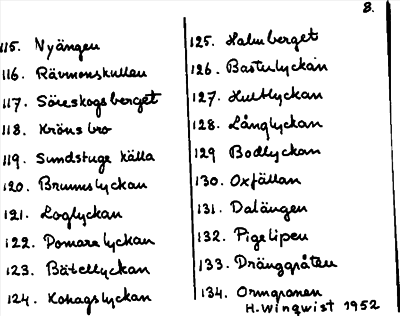 8.
115. Nyängen
116. Rävmonskullen
117. Söreskogsberget
118. Kröns bro
119. Sundstuge källa
120. Brunnslyckan
121. Loglyckan
122. Domarelyckan
123. Bätellyckan
124. Kohagslyckan
125. Halmberget
126. Bastulyckan
127. Hultlyckan
128. Långlyckan
129 Bodlyckan
130. Oxfällan
131. Dalängen
132. Pigelipen
133. Dränggråten
134. Ormgranen
H. Winqwist 1952